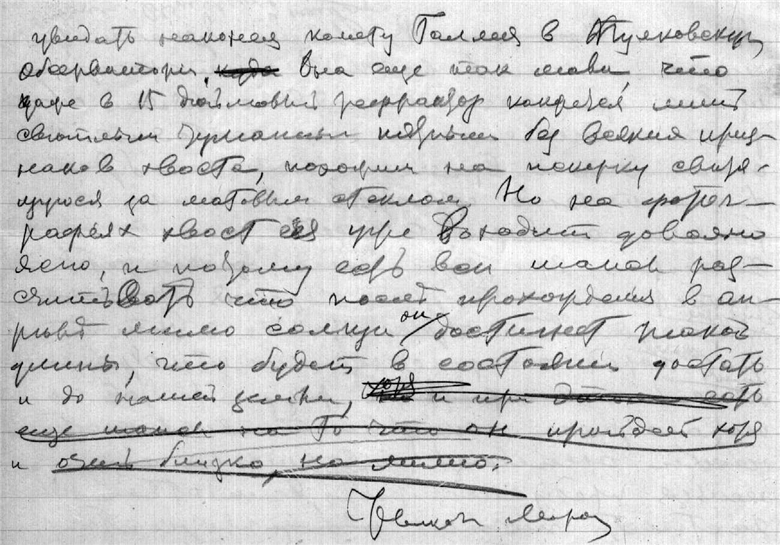 увидать наконец комету Галлея в Пулковскую
обсерваторию, она еще так мала что
даже в 15 дюймовый рефрактор кажется лишь
светлым туманным пятном без всяких приз-
наков хвоста, похожим на искорку светя-
щуюся за матовым стеклом. Но на фотог-
рафиях хвост ея уже выходит довольно
ясно, и поэтому есть все шансы рас-
считывать что после прохождения в ап-
реле мимо солнца он достигнет такой
длины, что будет в состоянии достать
и до нашей земли, и при этом есть
еще шанс на то что он пройдет хотя
и очень близко, но мимо.